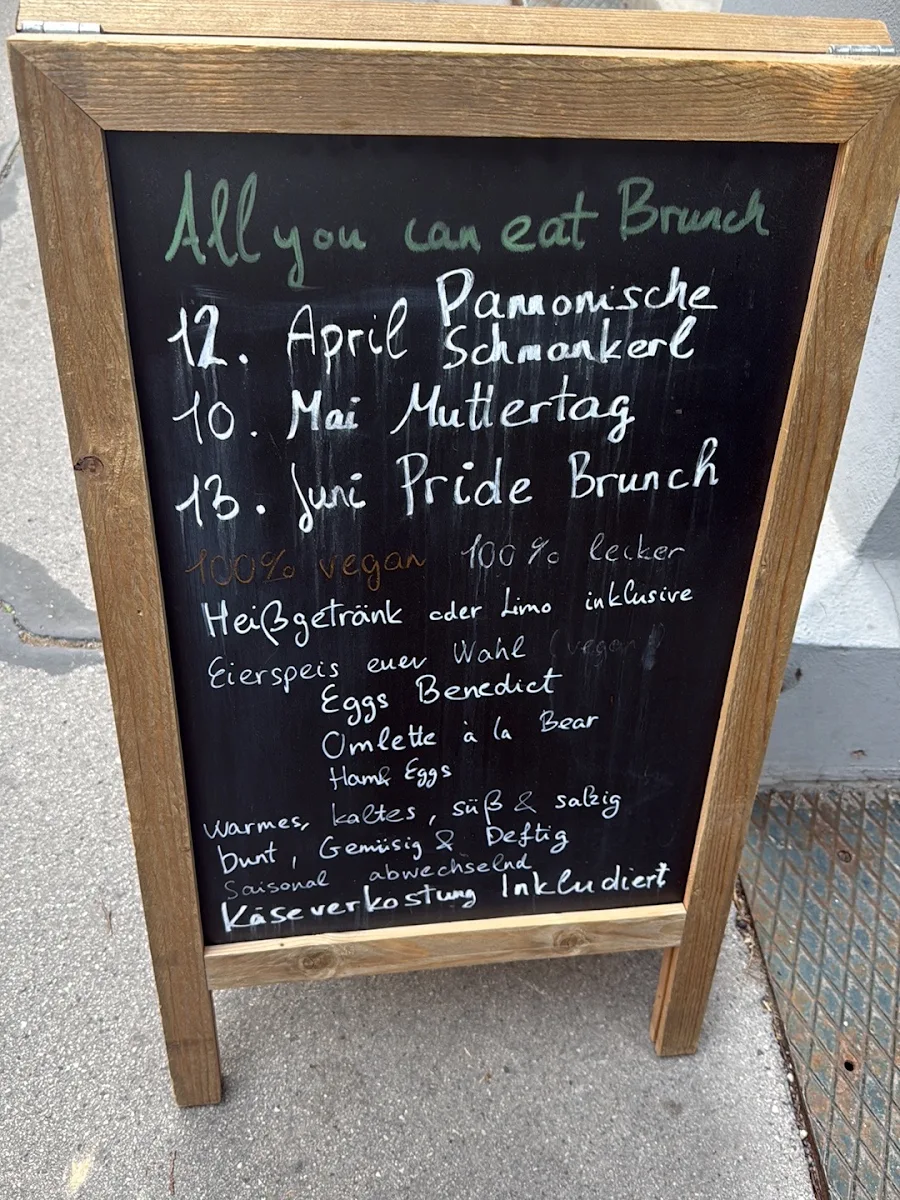 All you can eat Brunch
12. April Pannonische
Schmankerl
10. Mai Muttertag
13. Juni Pride Brunch
100% vegan 100% lecker
Heißgetränk oder Limo inklusive
Eierspeis euer Wahl (vegan)
Eggs Benedict
Omlette à la Bear
Ham& Eggs
Warmes, kaltes, süß & salzig
bunt, Gemüsig & Deftig
Saisonal abwechselnd
Käseverkostung Inkludiert